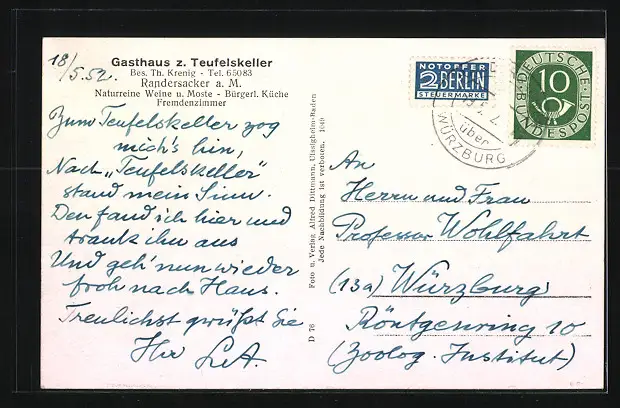 18/5.52.
Gasthaus z. Teufelskeller
Bes. Th. Krenig - Tel. 65083
Randersacker a. M.
Naturreine Weine u. Moste - Bürgerl. Küche
Fremdenzimmer
Zum Teufelskeller zog
mich's hin,
Nach „Teufelskeller"
stand mein Sinn.
Den fand ich hier und
trank ihn aus
Und geh' nun wieder
froh nach Haus.
Treulichst grüßt Sie
Ihr
Foto u. Verlag Alfred Dittmann, Uissigheim-Baden
Jede Nachbildung ist verboten. 1949
D 76
NOTOPFER
2 BERLIN
STEUERMARKE
DEUTSCHE BUNDESPOST
10
über
WÜRZBURG
An
Herrn und Frau
Professor Wohlfahrt
(13a) Würzburg
Röntgenring 10
(Zoolog. Institut)